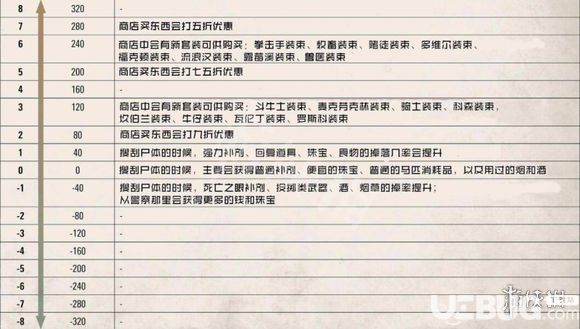 8 320 -
7 280 商店买东西会打五折优惠
6 240 商店中会有新套装可供购买：拳击手装束、蛟畜装束、赌徒装束、多维尔装束、
福克顿装束、流浪汉装束、露茜溪装束、兽医装束
5 200 商店买东西会打七五折优惠
4 160 -
3 120 商店中会有新套装可供购买：斗牛士装束、麦克芬克林装束、骑士装束、科森装束、
坎伯兰装束、牛仔装束、瓦伦丁装束、罗斯科装束
2 80 商店买东西会打九折优惠
1 40 搜刮尸体的时候，强力补剂、回复道具、珠宝、食物的掉落几率会提升
0 0 搜刮尸体的时候，主要会获得普通补剂、便宜的珠宝、普通的马匹消耗品，以及用过的烟和酒
-1 -40 搜刮尸体的时候，死亡之眼补剂、投掷类武器、酒、烟草的掉率提升；
从警察那里会获得更多的钱和珠宝
-2 -80 -
-3 -120 -
-4 -160 -
-5 -200 -
-6 -240 -
-7 -280 -
-8 -320 -
UEBUG.net